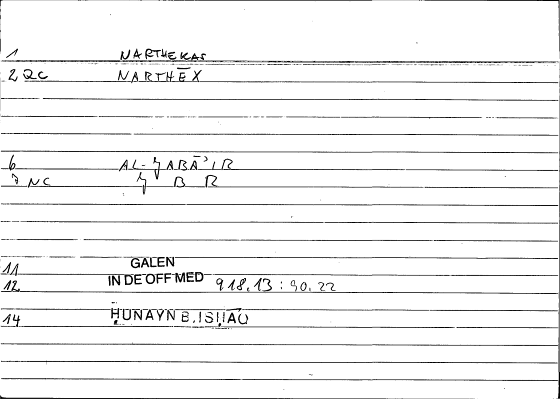 1 NARTHEKAS
2 QC NARTHĒX
6 AL-ǦABĀʾIR
7 NC Ǧ B R
11 GALEN
12 IN DE OFF MED 918.13 : 90.22
14 ḤUNAYN B. ISḤĀQ